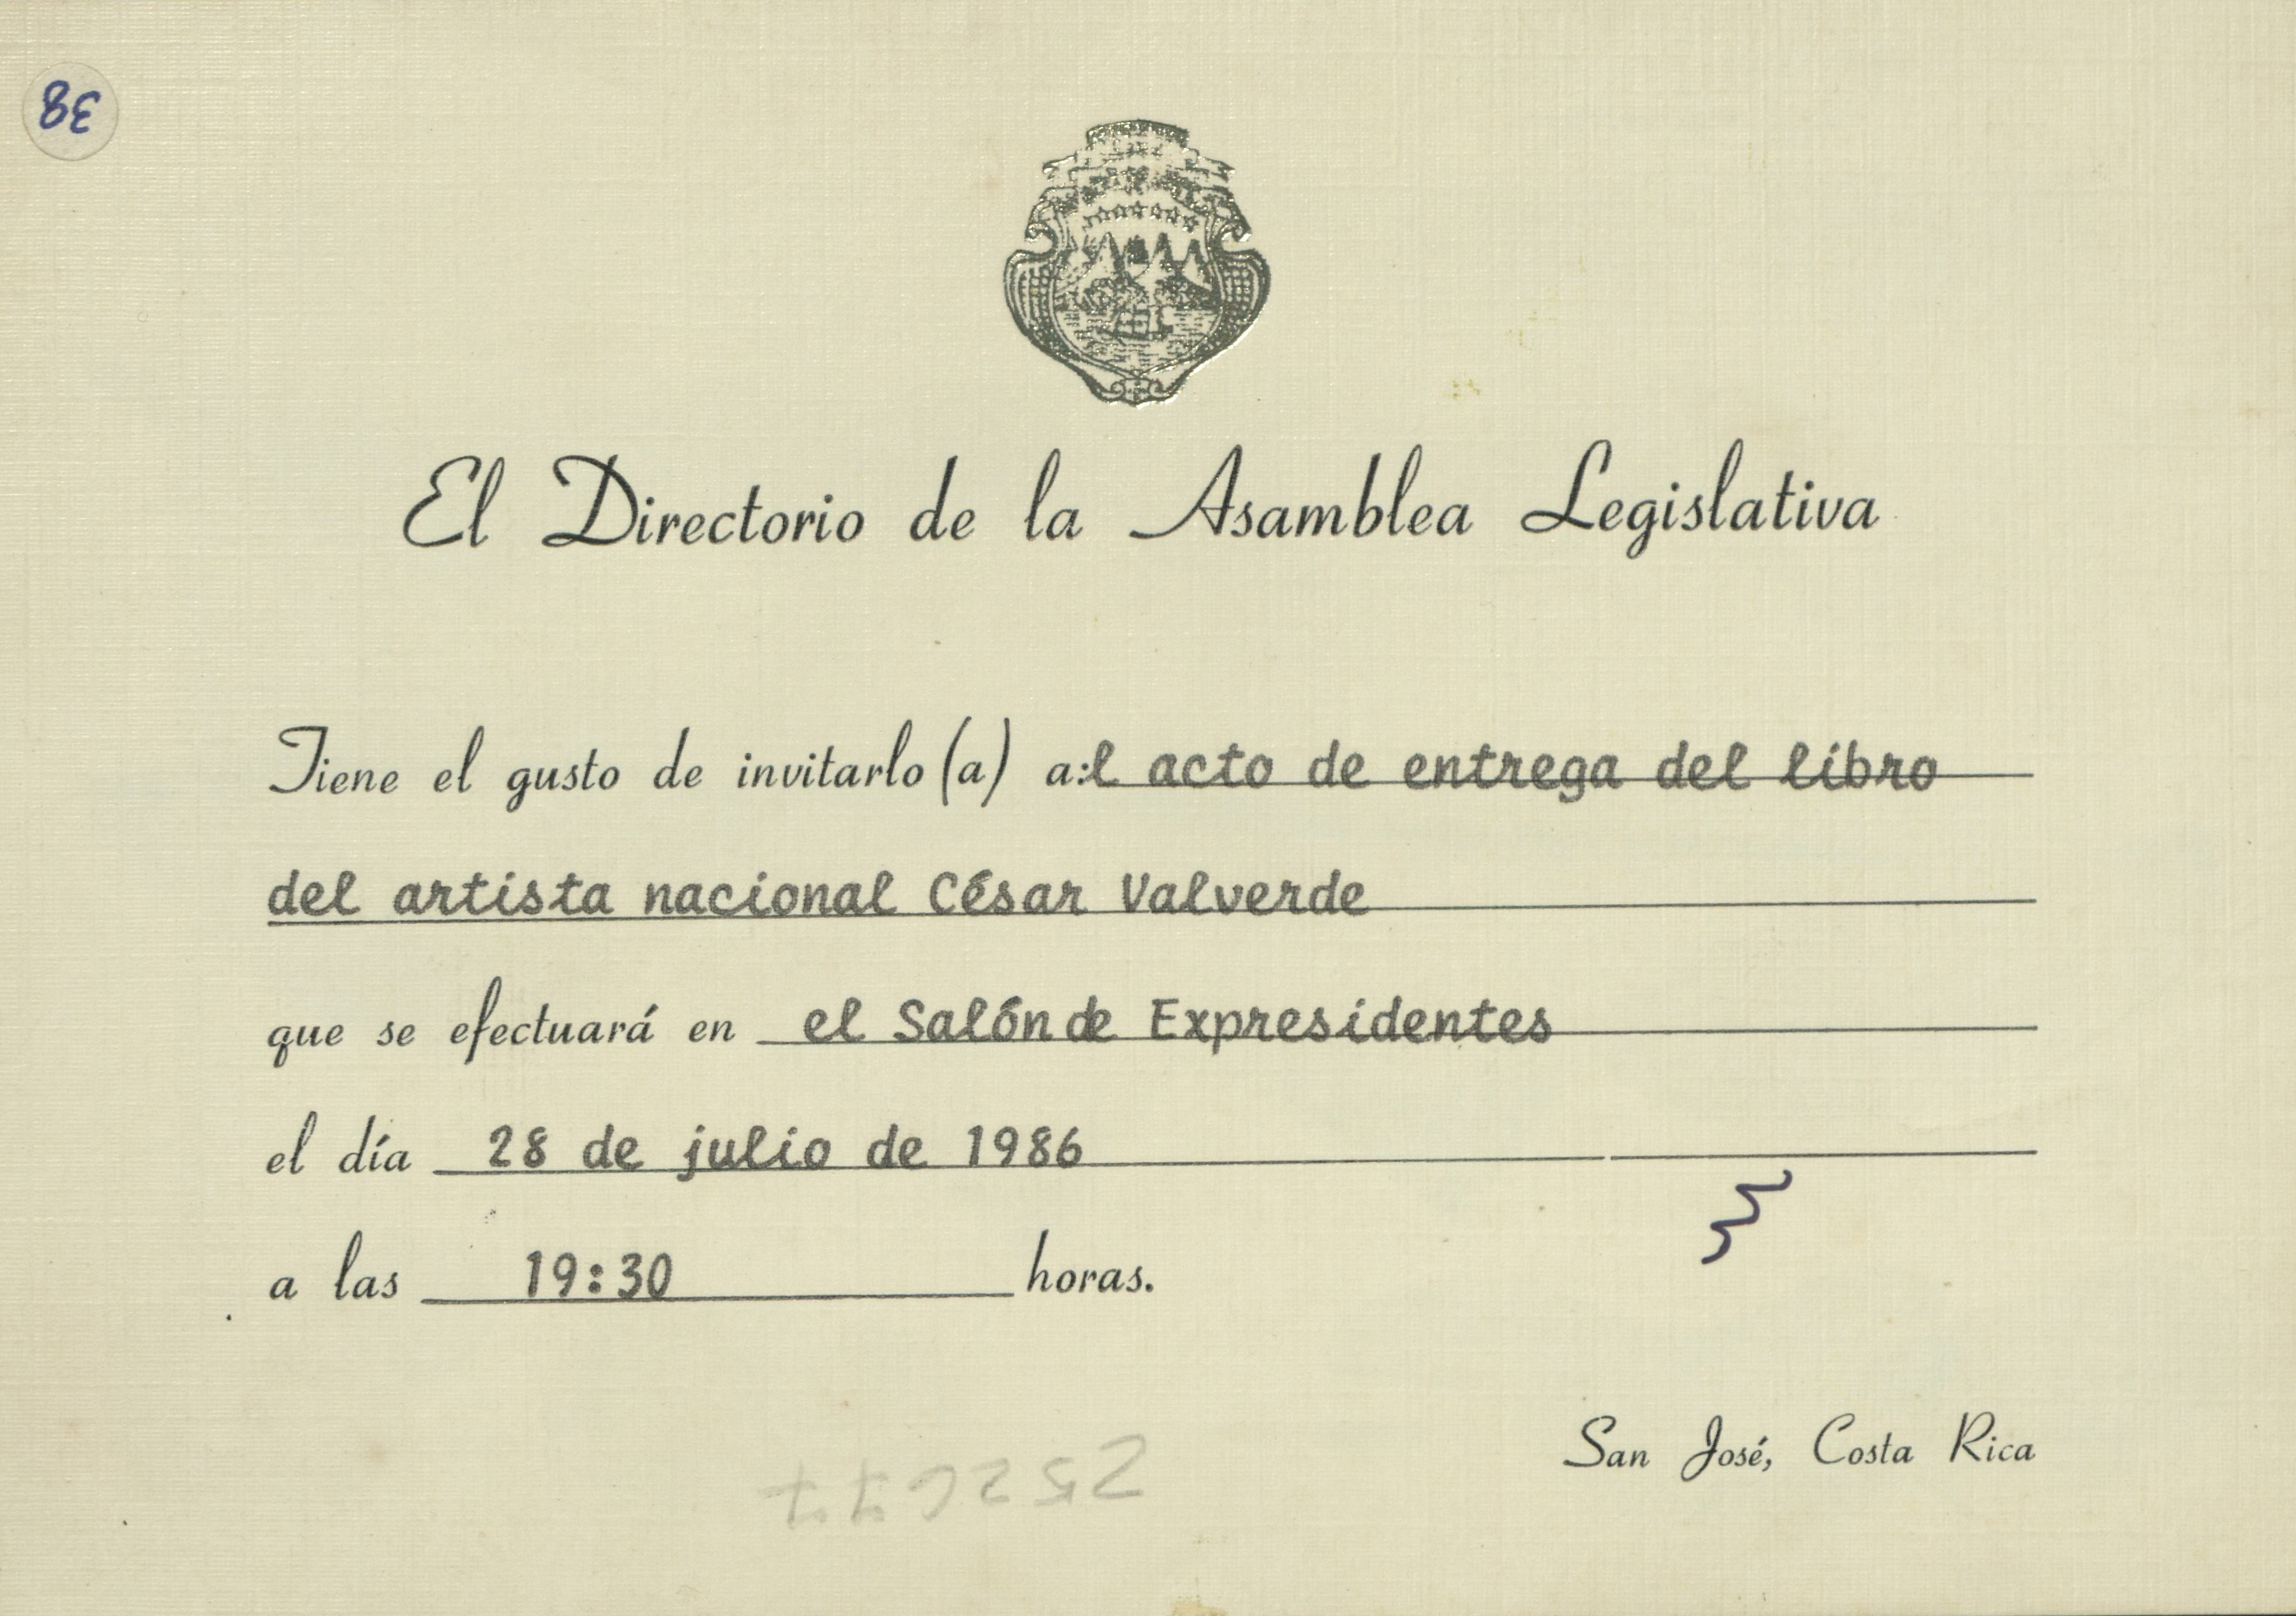 38
El Directorio de la Asamblea Legislativa
Tiene el gusto de invitarlo(a) a:l acto de entrega del libro
del artista nacional César Valverde
que se efectuará en el Salón de Expresidentes
el día 28 de julio de 1986
a las 19:30 horas.
San José, Costa Rica